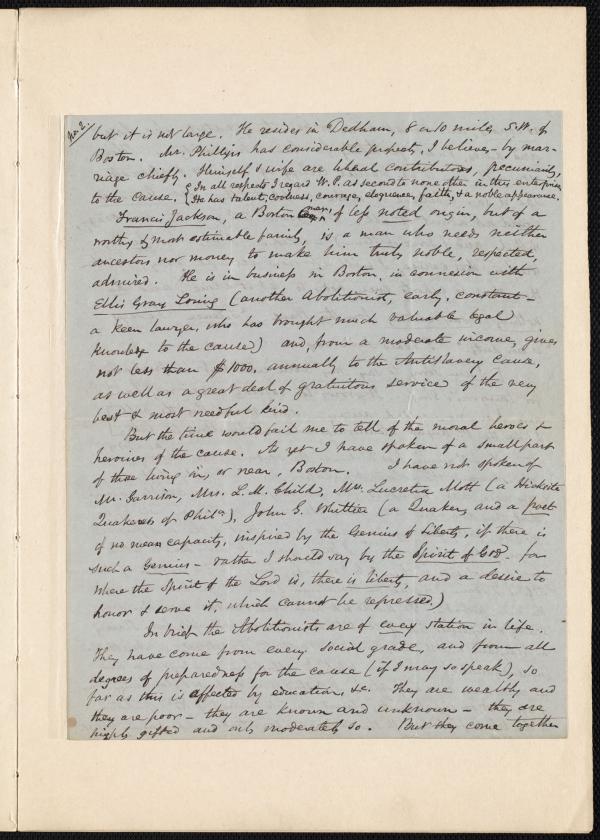 No. 2.
but it is not large. He resides in Dedham, 8 or 10 miles S.W. of
Boston. Mr. Phillips has considerable property, I believe - by mar-
riage chiefly. Himself & wife are liberal contributors, pecuniarily,
to the cause. { In all respects I regard W. P. as second to none other in this enterprise.
He has talent, coolness, courage, eloquence, faith, & a noble appearance.
Francis Jackson, a Boston man, of less noted origin, but of a
worthy & most estimable family, is a man who needs neither
ancestors nor money to make him truly noble, respected,
admired. He is in business in Boston, in connexion with
Ellis Gray Loring (another Abolitionist, early, constant -
a keen lawyer, who has brought much valuable legal
knowledge to the cause) and, from a moderate income, gives
not less than $1000. annually to the Antislavery Cause,
as well as a great deal of gratuitous service of the very
best & most needful kind.
But the time would fail me to tell of the moral heroes &
heroines of the cause. As yet I have spoken of a small part
of those living in, or near, Boston. I have not spoken of
Mr. Garrison, Mrs. L. M. Child, Mrs. Lucretia Mott (a Hicksite
Quakeress of Phila.), John G. Whittier (a Quaker, and a poet
of no mean capacity, inspired by the Genius of Liberty, if there is
such a Genius - rather I should say by the Spirit of God. for
where the Spirit of the Lord is, there is liberty, and a desire to
honor & serve it, which cannot be repressed.)
In brief the Abolitionists are of every station in life.
They have come from every social grade, and from all
degrees of preparedness for the cause (if I may so speak), so
far as this is affected by education, &c. They are wealthy and
they are poor - they are known and unknown - they are
highly gifted and only moderately so. But they come together